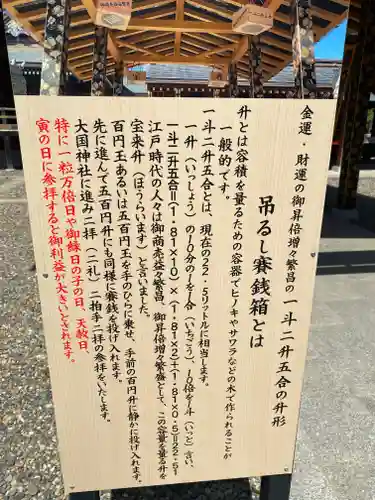 金運・財運の御昇倍増々繁昌の一斗二升五合の升形
吊るし賽銭箱とは
升とは容積を量るための容器でヒノキやサワラなどの木で作られることが
一般的です。
一斗二升五合とは、現在の22・5リットルに相当します。
一升(いっしょう)の10分の1を1合(いちごう)、10倍を1斗(いっと)言い、
一斗二升五合=(1・81×10)×(1・81×2)+(1・81×0・5)=22・51
江戸時代の人々は御商売益々繁昌、御昇倍増々繁盛として、この容量を量る升を
宝来升(ほうらいます)と言いました。
百円玉あるいは五百円玉を手のひらに乗せ、手前の百円升に静かに投げ入れます。
先に進んで五百円升にも同様に賽銭を投げ入れます。
大国神社に進み二拝(二礼)二拍手二拝の参拝をいたします。
特に一粒万倍日や御縁日の子の日、天赦日、
寅の日に参拝すると御利益が大きいとされます。